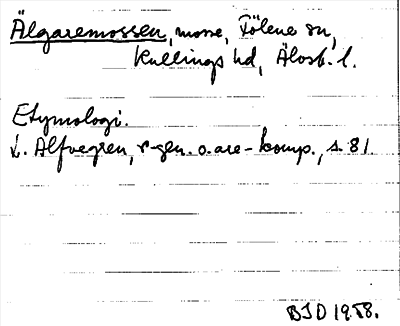 Älgaremossen, mosse, Fölene sn,
Kullings hd, Älvsb. l.
Etymologi.
L. Alfvegren, r-gen. o. are-komp., s. 81.
BJD 1958.